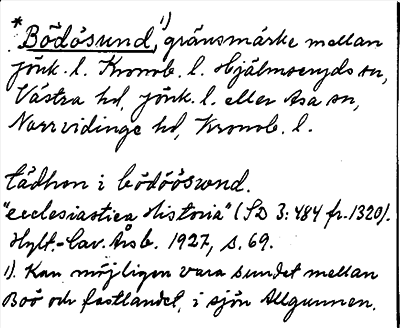 * Bödösund,¹⁾ gränsmärke mellan
Jönk. l. Kronob. l. Hjälmseryds sn,
Västra hd, Jönk. l. eller Asa sn,
Norrvidinge hd, Kronob. l.
tädhen i bödöösund.
"ecclesiastica Historia" (SD 3:484 fr. 1320).
Hylt.-Cav. Årsb. 1927, s. 69.
¹⁾. Kan möjligen vara sundet mellan
Boö och fastlandet, i sjön Allgunnen.